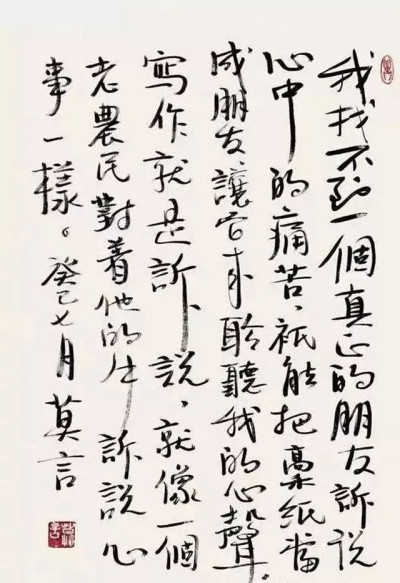 我找不到一個真正的朋友訴說
心中的痛苦、衹能把稾紙當
成朋友、讓它来聆聽我的心聲。
寫作就是訴說，就像一個
老農民對着他的牛訴說心
事一樣。癸巳七月莫言